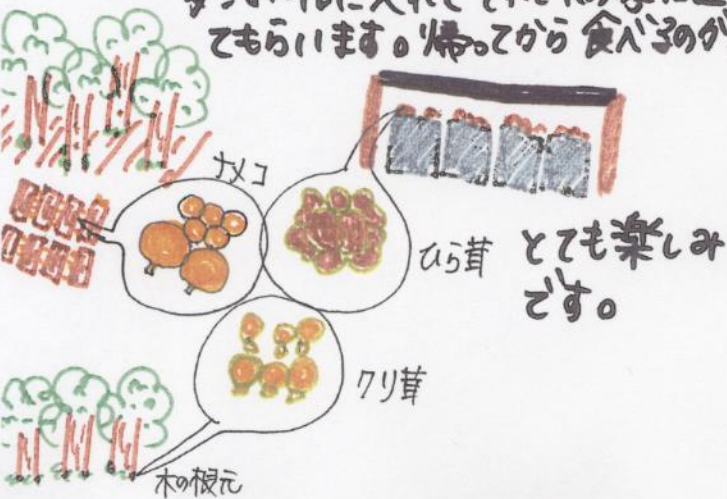 に入れて
てもらいます。帰ってから 食べるのが
ナメコ
ひら茸
とても楽しみ
です。
クリ茸
木の根元